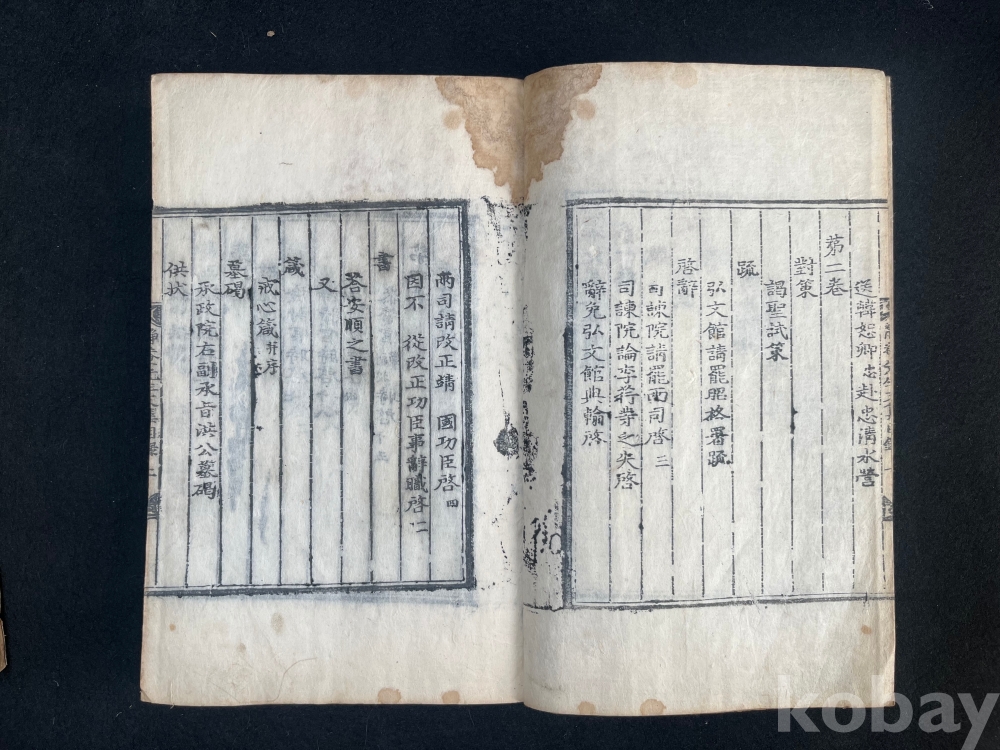 送韓恕卿忠赴忠淸水營
苐二卷
對策
謁聖試策
疏
弘文館請罷昭格署疏
啓辭
司諫院請罷兩司啓三
司諫院論李䓁之失啓
辭免弘文館典翰啓
兩司請改正靖 國功臣啓四
因不 從改正功臣事辭職啓二
書
荅安順之書
又
箴
戒心箴幷序
墓碣
承政院右副承旨洪公墓碣
供状
kobay